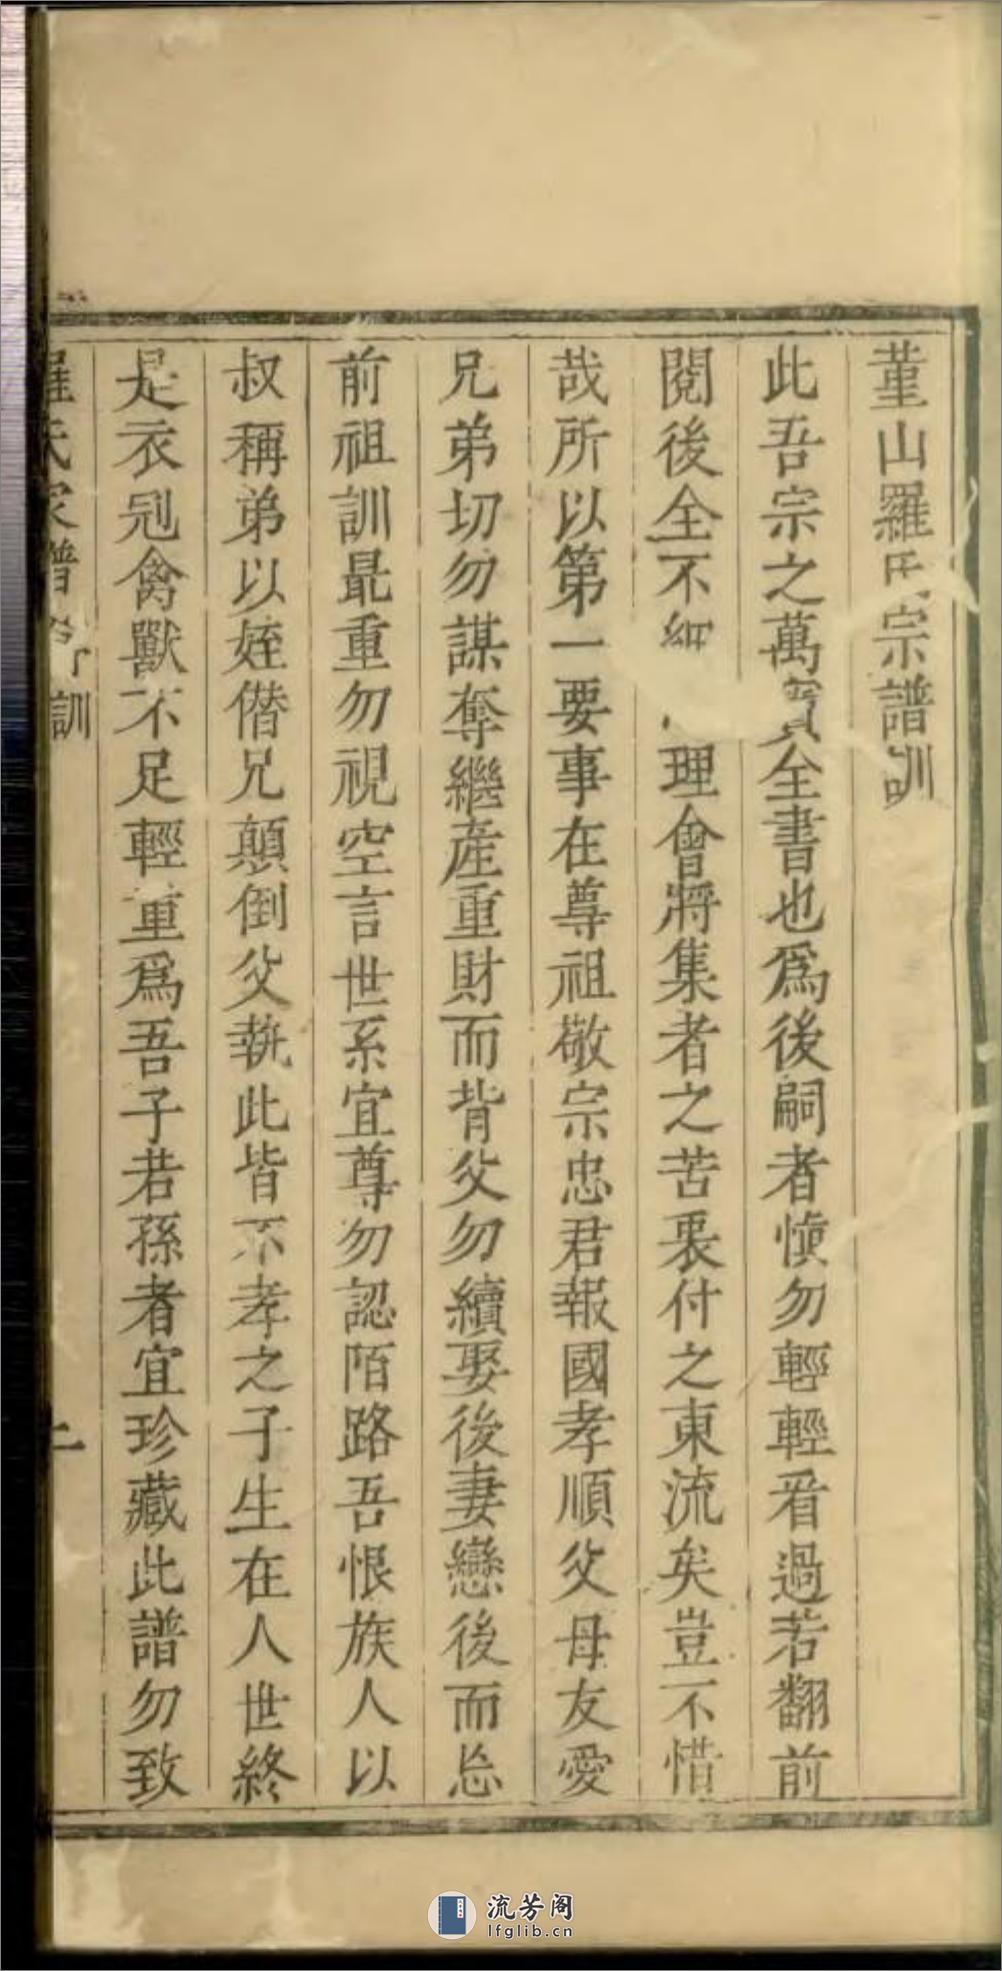 董山羅氏宗譜訓
此吾宗之萬寶全書也爲後嗣者愼勿輕輕看過若翻前
閱後全不細理會將集者之苦衷付之東流矣豈不惜
哉所以第一要事在尊祖敬宗忠君報國孝順父母友愛
兄弟切勿謀奪繼產重財而背父勿續娶後妻戀後而忘
前祖訓最重勿視空言世系宜尊勿認陌路吾恨族人以
叔稱弟以姪僭兄顛倒父執此皆不孝之子生在人世終
是衣冠禽獸不足輕重爲吾子若孫者宜珍藏此譜勿致
羅氏家譜 訓
流芳阁
lfglib.cn